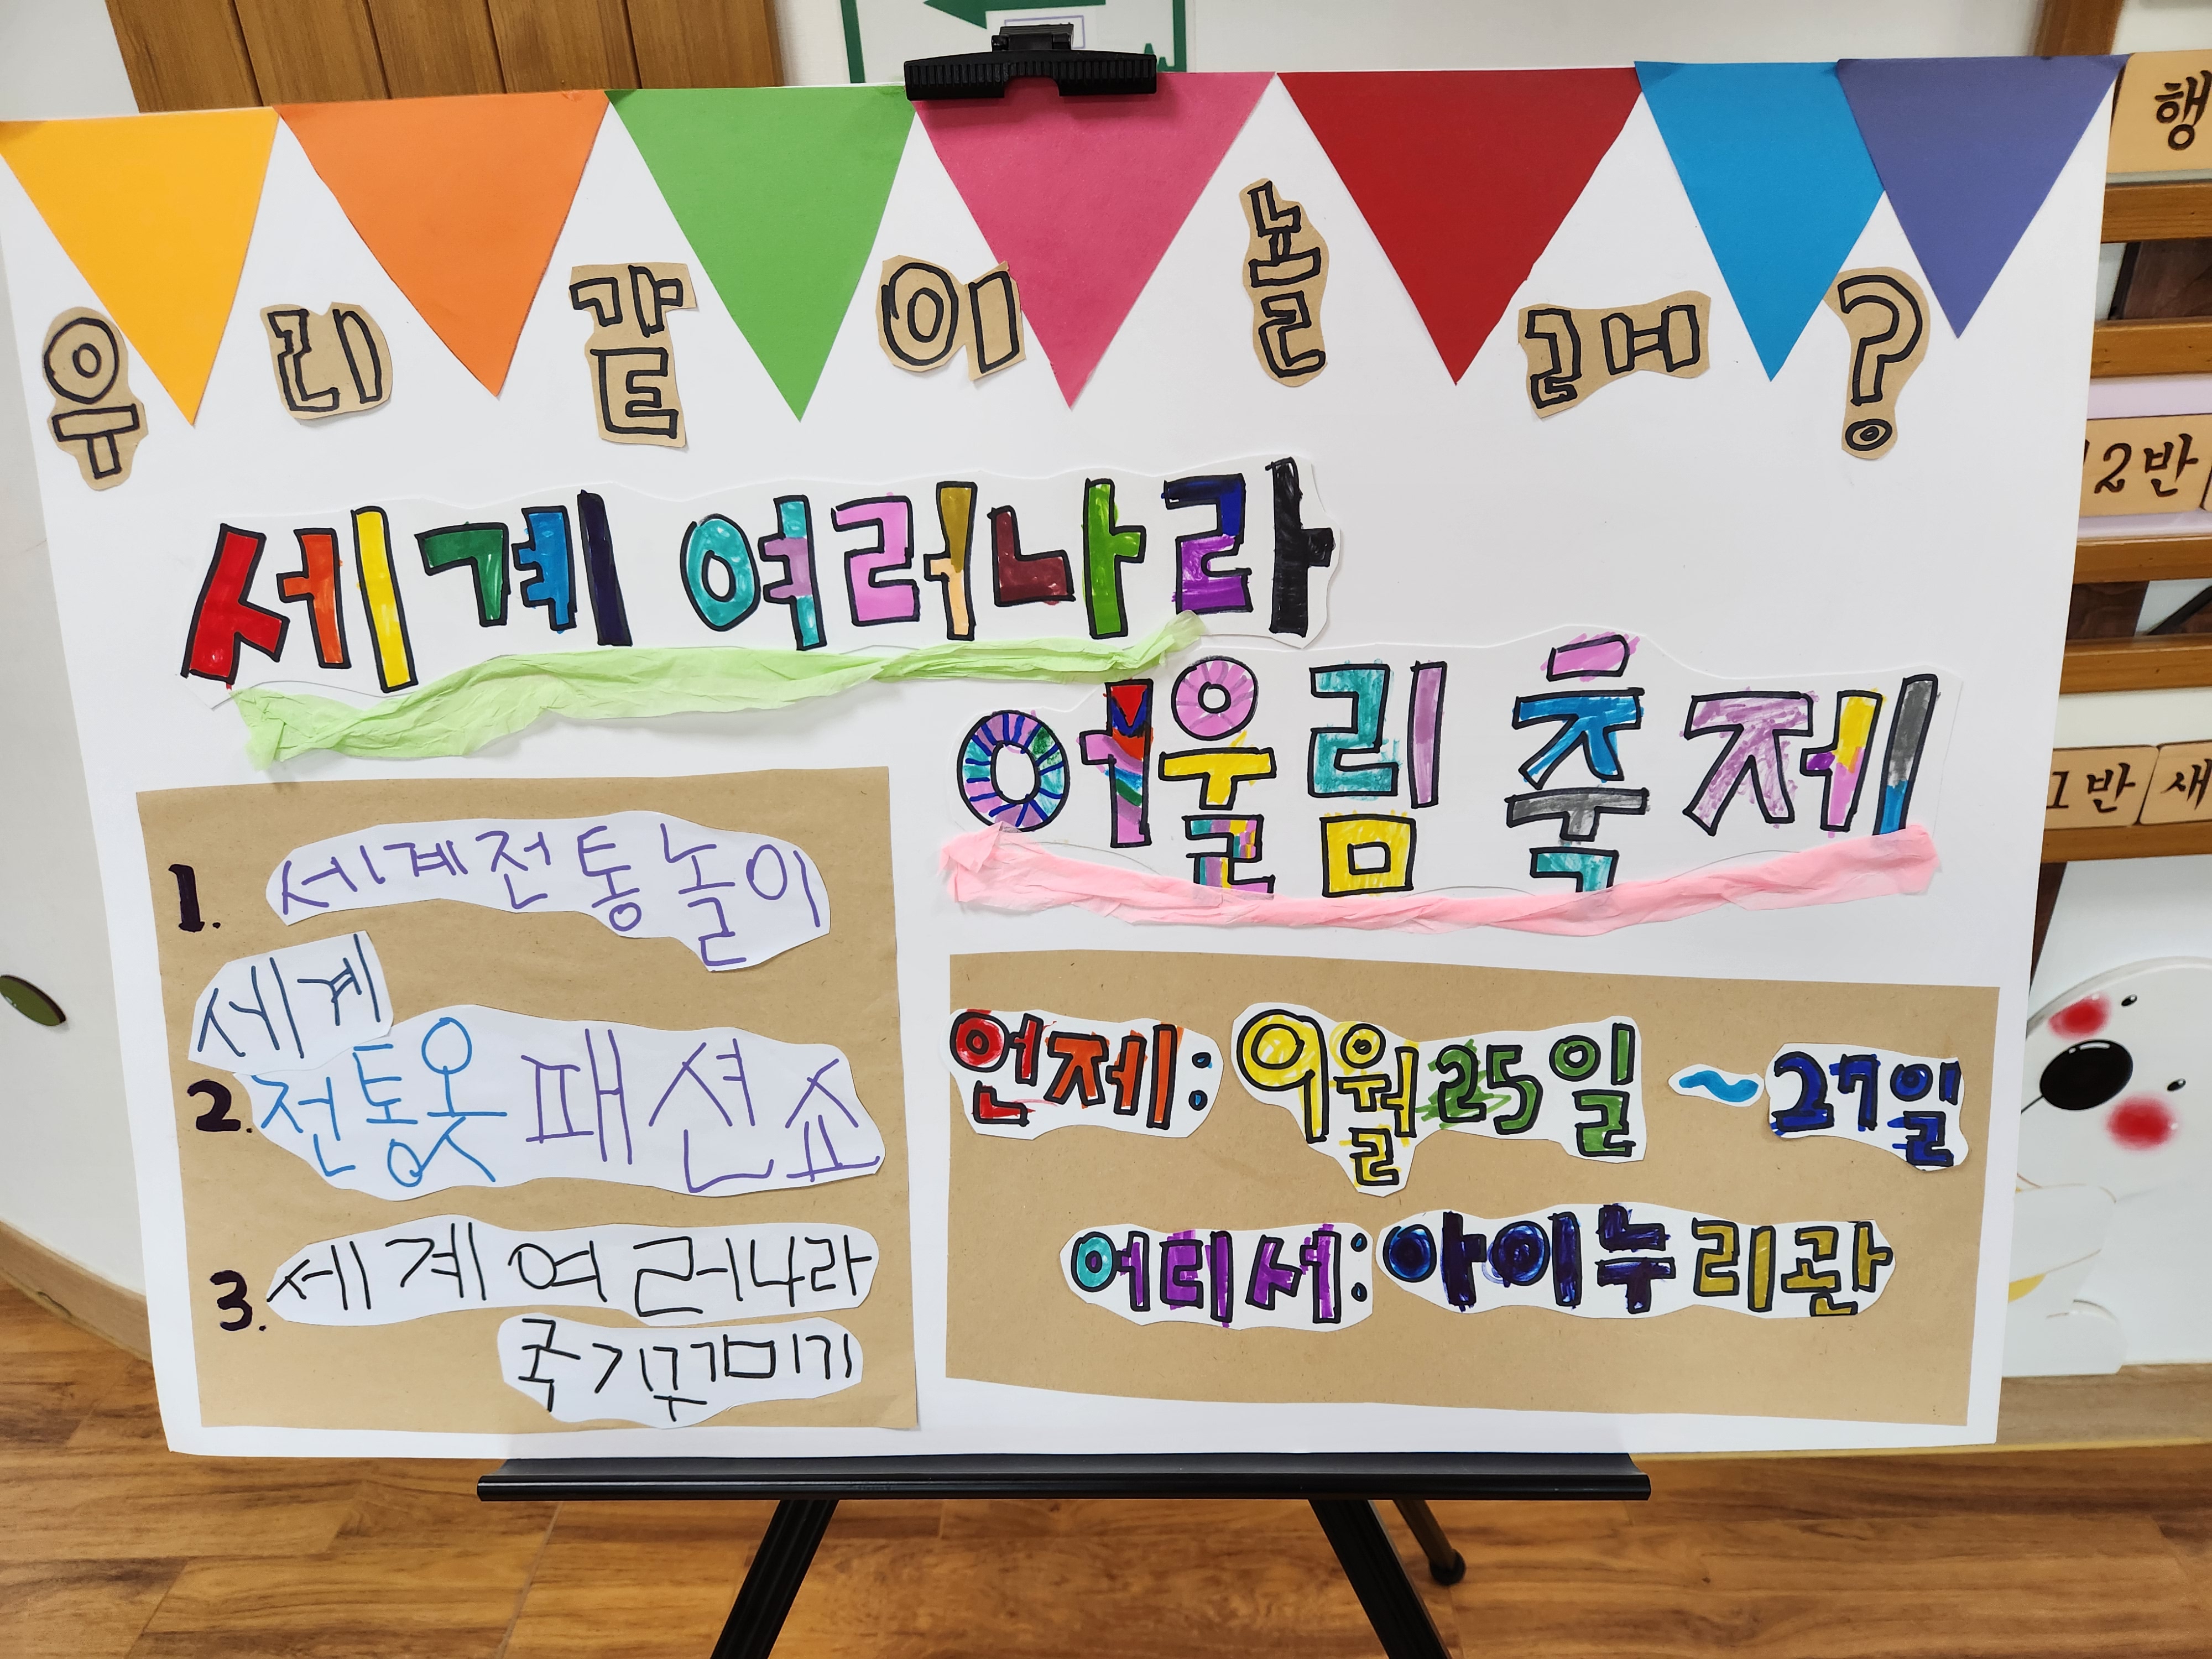 우리 같이 놀래?
세계 여러나라
어울림 축제
1. 세계전통놀이
세계
2. 전통옷 패션쇼
3. 세계여러나라
국기꾸미기
언제: 9월 25일 ~ 27일
어디서: 아이누리관
행
2반
1반 새